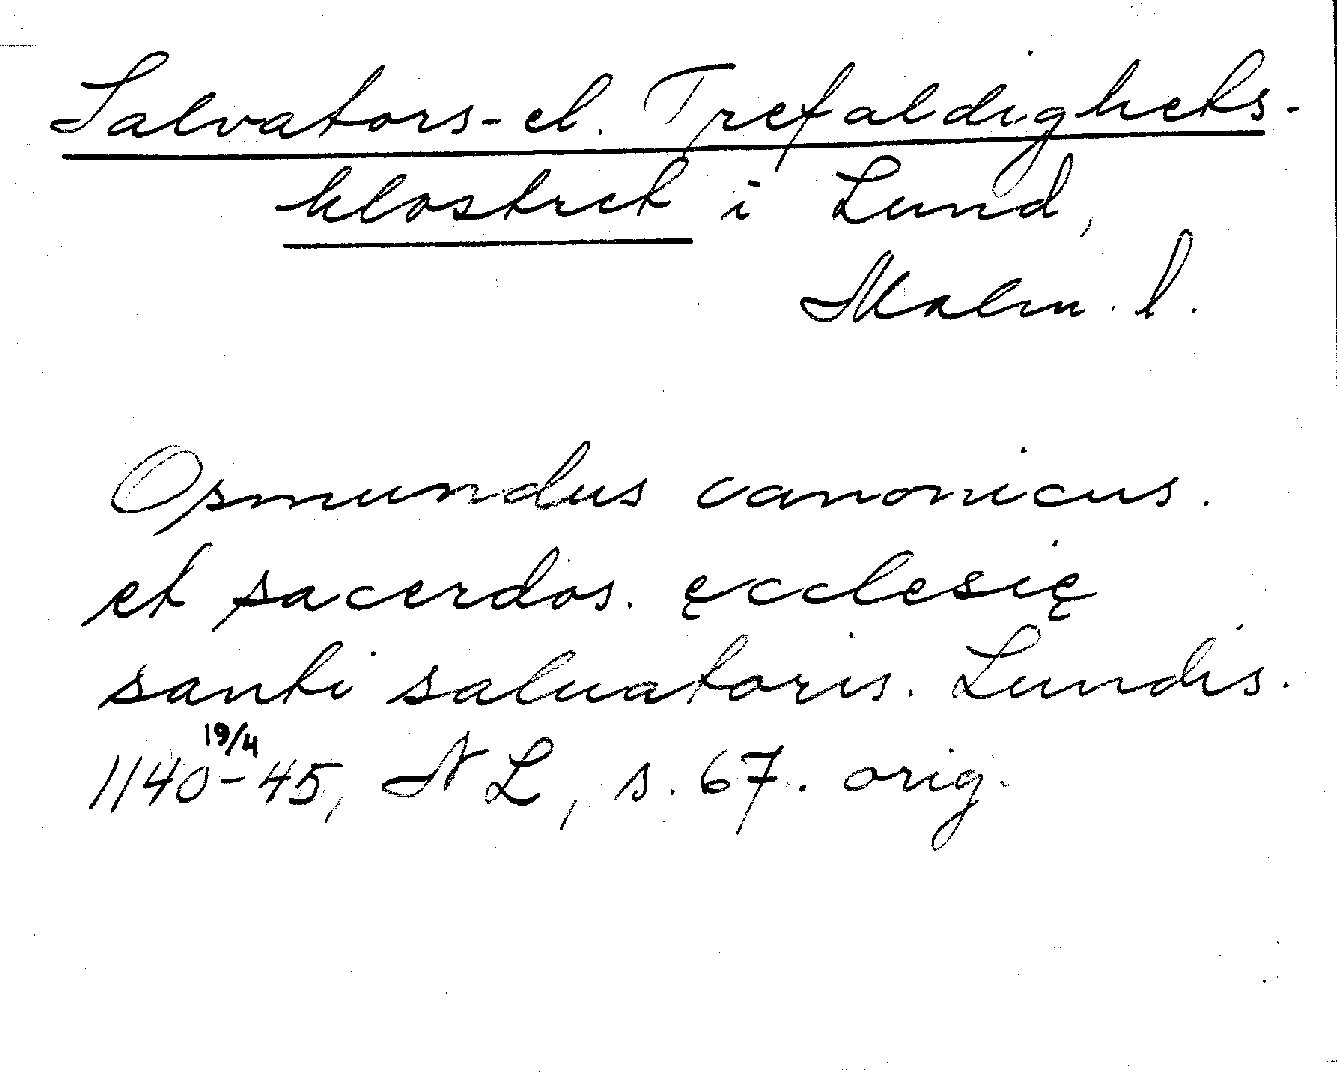 Salvators- el. Trefaldighets-
klostret i Lund,
Malm. l.
Opmundus canonicus.
et sacerdos. ęcclesię
santi saluatoris. Lundis.
1140-45, 19/4 NL, s. 67. orig.